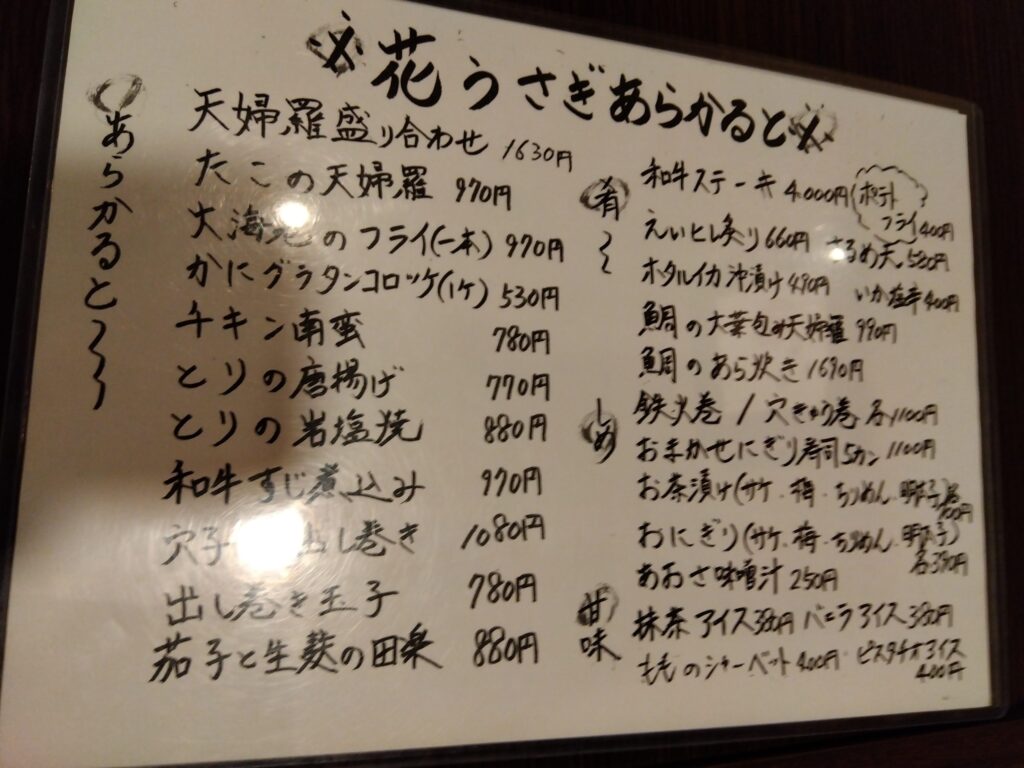 花うさぎあらかると
あらかると〜〜〜
天婦羅盛り合わせ 1630円
たこの天婦羅 970円
大海老のフライ(一本) 970円
かにグラタンコロッケ(1ヶ) 530円
チキン南蛮 780円
とりの唐揚げ 770円
とりの岩塩焼 880円
和牛すじ煮込み 970円
穴子 出し巻き 1080円
出し巻き玉子 780円
茄子と生麩の田楽 880円
肴〜〜
和牛ステーキ 4.000円
ポテトフライ 400円
えいひれ炙り 660円
するめ天 580円
ホタルイカ沖漬け 490円
いか塩辛 400円
鯛の大葉包み天婦羅 990円
鯛のあら炊き 1690円
〆
鉄火巻 / 穴きゅう巻 各1100円
おまかせにぎり寿司5カン 1100円
お茶漬け(サケ・梅・ちりめん・明太子)各
おにぎり(サケ・梅・ちりめん・明太子)
各390円
あおさ味噌汁 250円
甘味
抹茶アイス 380円 バニラアイス 380円
もものシャーベット 400円 ピスタチオアイス
400円